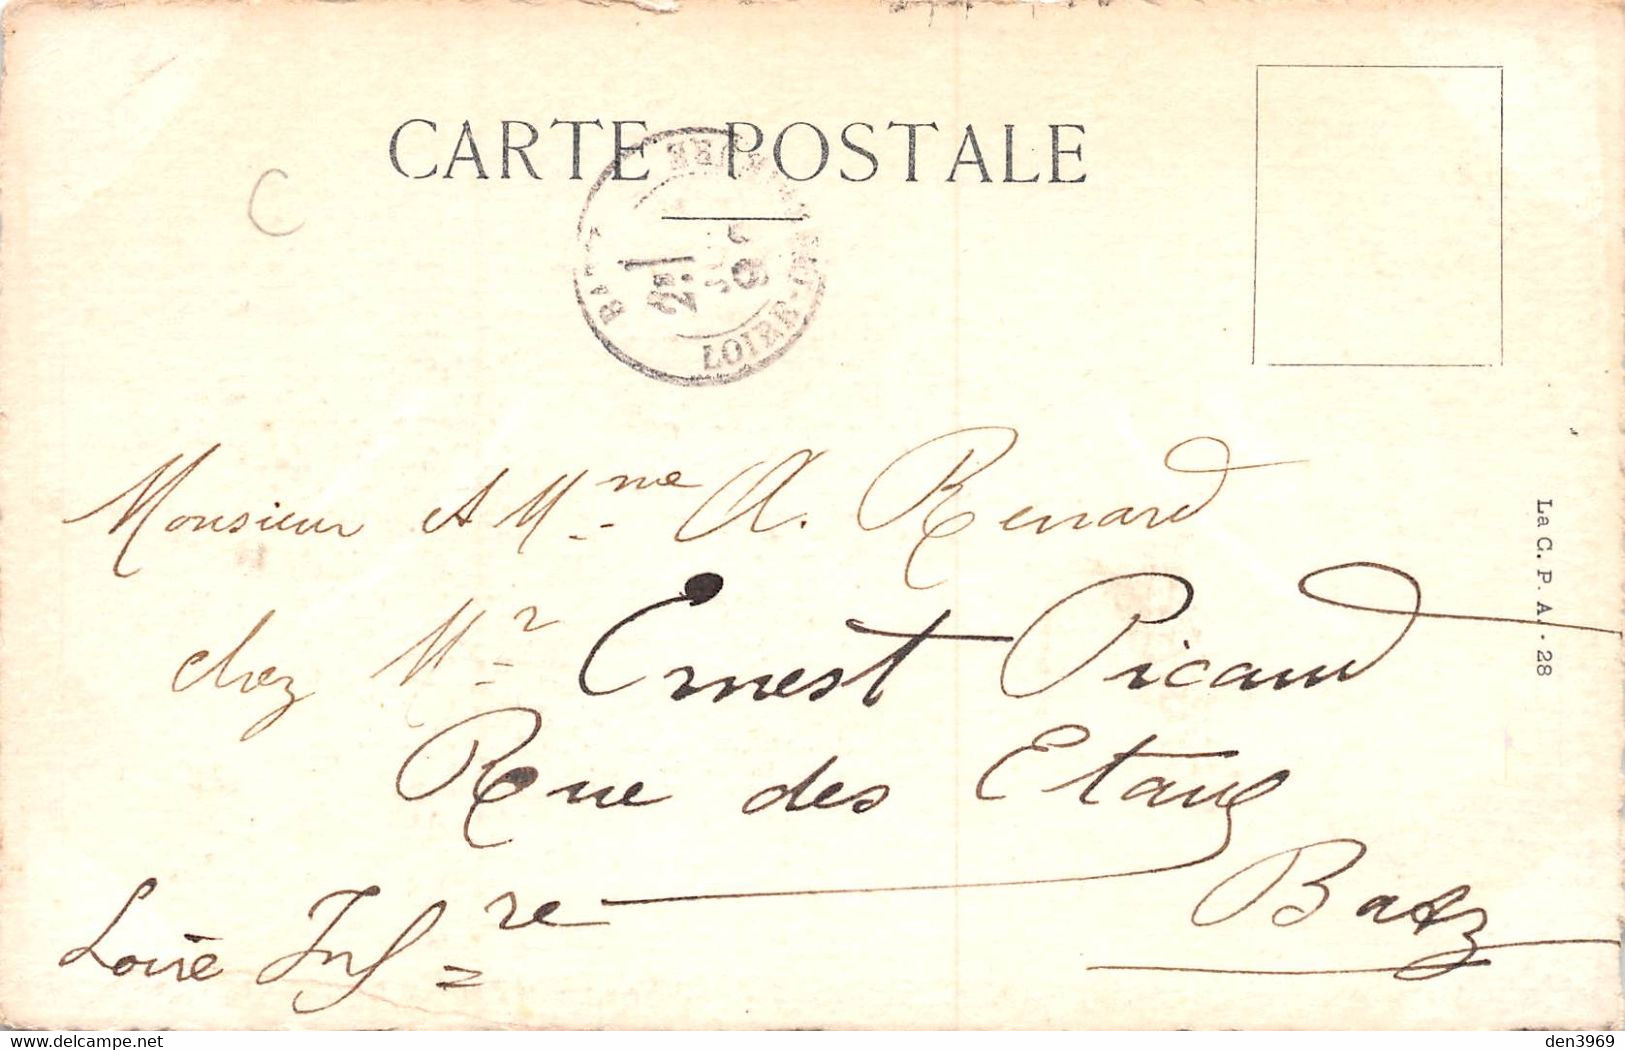 CARTE POSTALE
C
LOIRE
Monsieur et Mme A. Renard
chez Mr Ernest Picaud
Rue des Etang
Batz
Loire Infre
La C. P. A. - 28
delcampe.net
den3969